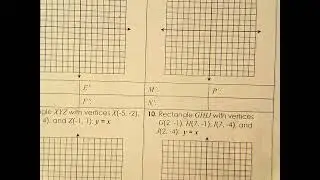 E': M': P':
F': N':
gle XYZ with vertices X(-5, -2), 10. Rectangle GHIJ with vertices
4), and Z(-1, 1): y = x G(2, -1), H(7, -1), I(7, -4), and
J(2, -4): y = x